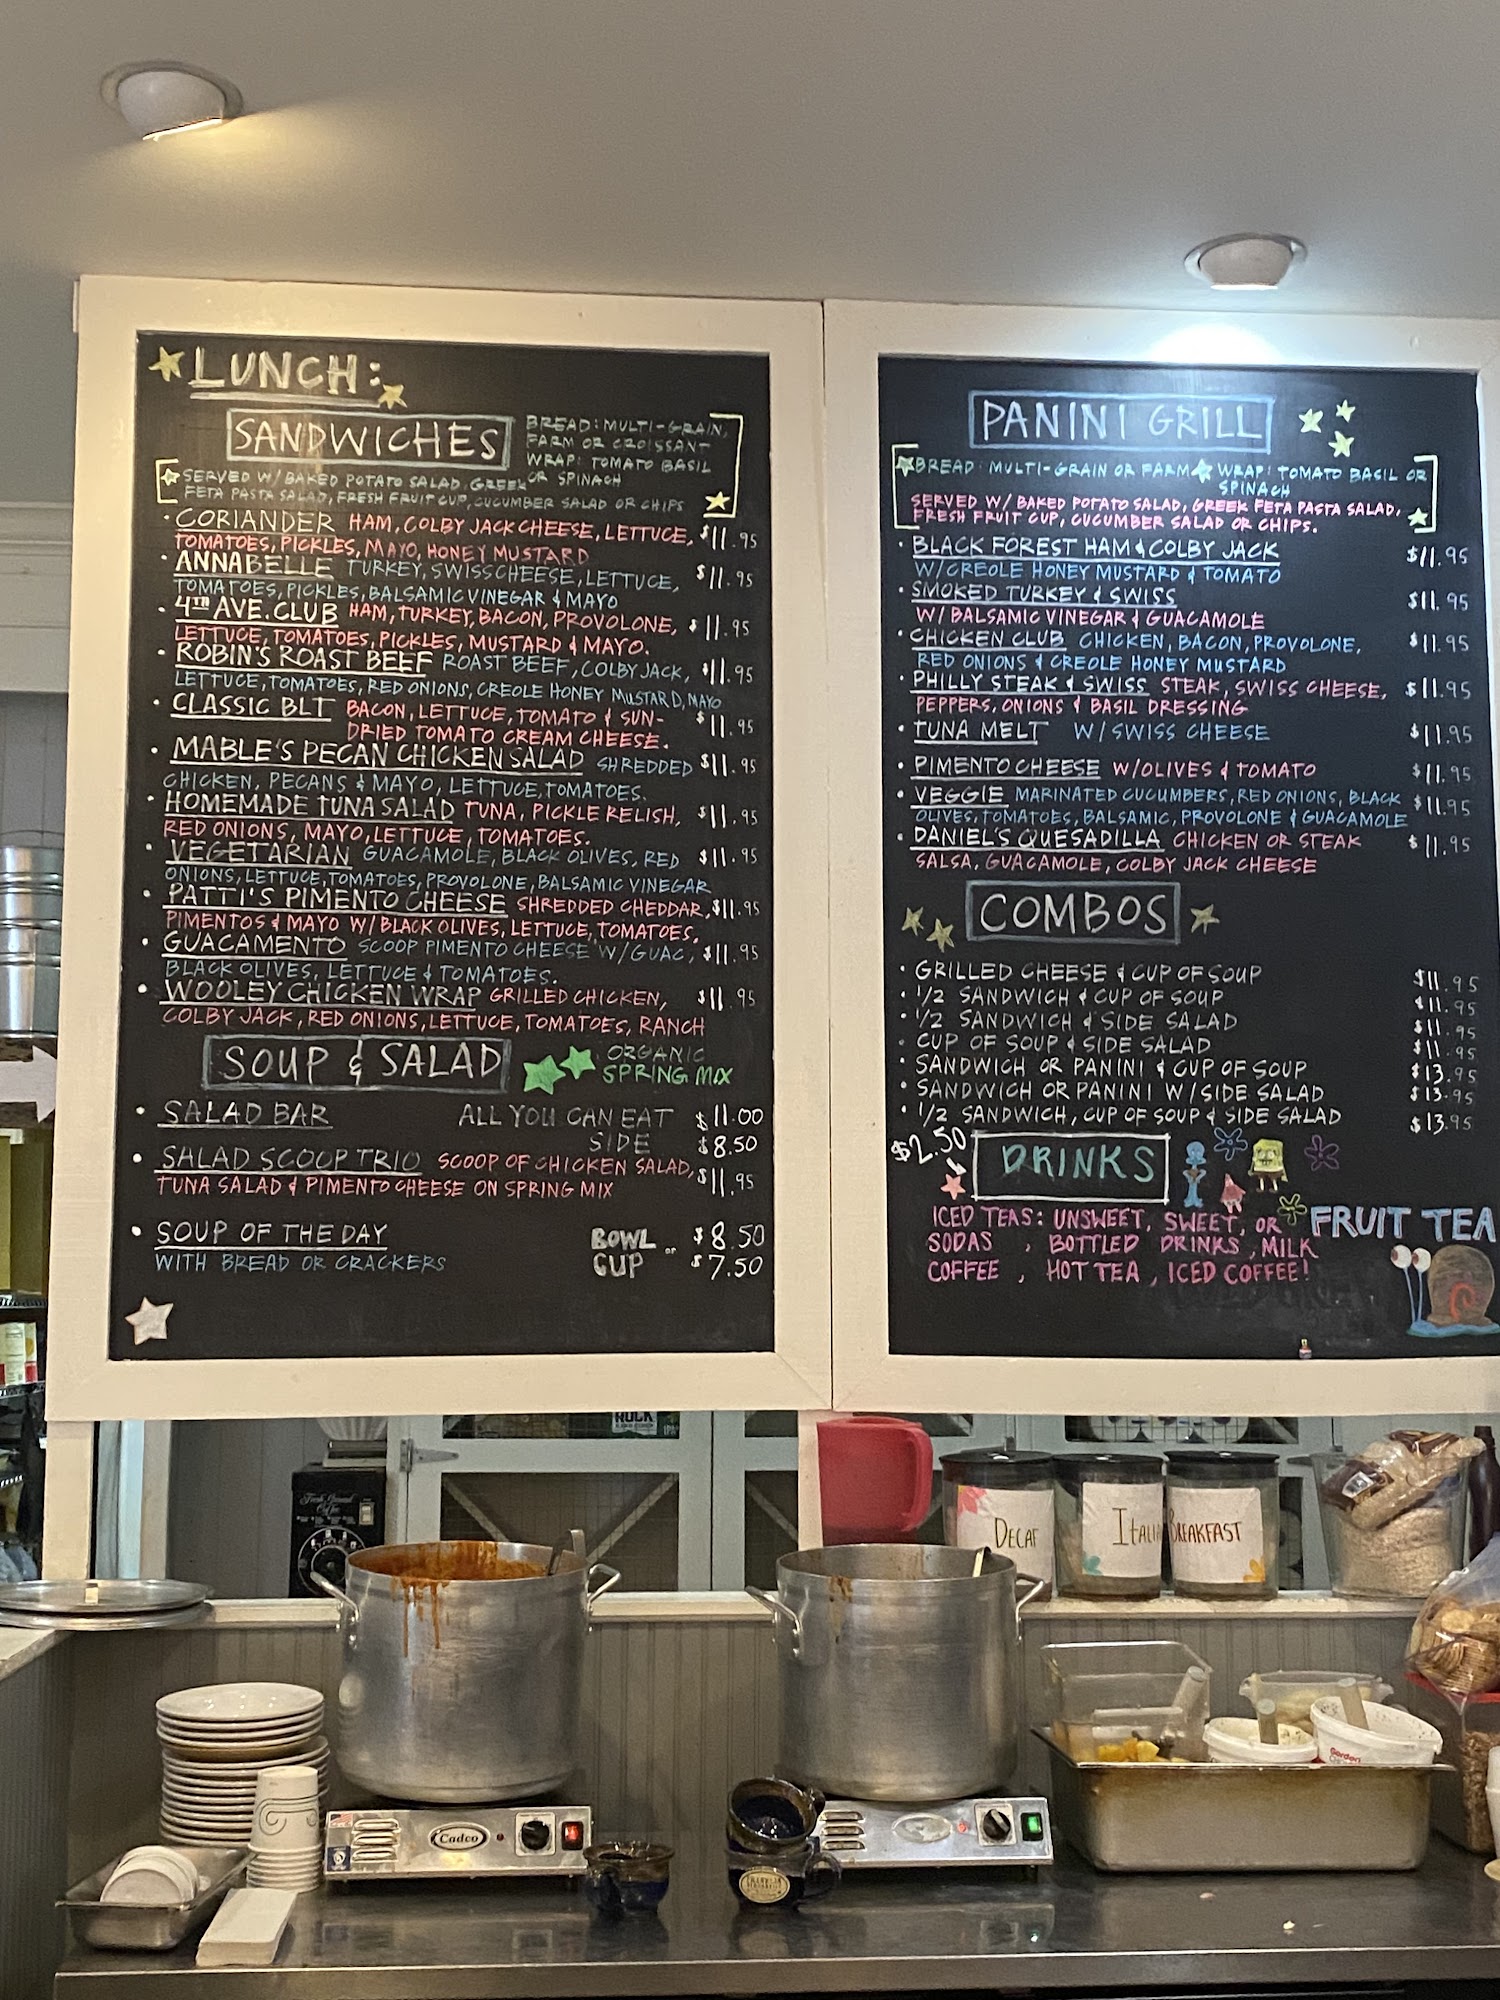 LUNCH:
SANDWICHES
BREAD: MULTI-GRAIN,
FARM OR CROISSANT
WRAP: TOMATO BASIL
OR SPINACH
SERVED W/ BAKED POTATO SALAD, GREEK
FETA PASTA SALAD, FRESH FRUIT CUP, CUCUMBER SALAD OR CHIPS
• CORIANDER HAM, COLBY JACK CHEESE, LETTUCE, $11.95
TOMATOES, PICKLES, MAYO, HONEY MUSTARD
• ANNABELLE TURKEY, SWISS CHEESE, LETTUCE, $11.95
TOMATOES, PICKLES, BALSAMIC VINEGAR & MAYO
• 4TH AVE. CLUB HAM, TURKEY, BACON, PROVOLONE, $11.95
LETTUCE, TOMATOES, PICKLES, MUSTARD & MAYO.
• ROBIN'S ROAST BEEF ROAST BEEF, COLBY JACK, $11.95
LETTUCE, TOMATOES, RED ONIONS, CREOLE HONEY MUSTARD, MAYO
• CLASSIC BLT BACON, LETTUCE, TOMATO & SUN- $11.95
DRIED TOMATO CREAM CHEESE.
• MABLE'S PECAN CHICKEN SALAD SHREDDED $11.95
CHICKEN, PECANS & MAYO, LETTUCE, TOMATOES.
• HOMEMADE TUNA SALAD TUNA, PICKLE RELISH, $11.95
RED ONIONS, MAYO, LETTUCE, TOMATOES.
• VEGETARIAN GUACAMOLE, BLACK OLIVES, RED $11.95
ONIONS, LETTUCE, TOMATOES, PROVOLONE, BALSAMIC VINEGAR
• PATTI'S PIMENTO CHEESE SHREDDED CHEDDAR, $11.95
PIMENTOS & MAYO W/ BLACK OLIVES, LETTUCE, TOMATOES.
• GUACAMENTO SCOOP PIMENTO CHEESE W/ GUAC, $11.95
BLACK OLIVES, LETTUCE & TOMATOES.
• WOOLEY CHICKEN WRAP GRILLED CHICKEN, $11.95
COLBY JACK, RED ONIONS, LETTUCE, TOMATOES, RANCH
SOUP & SALAD
ORGANIC
SPRING MIX
• SALAD BAR ALL YOU CAN EAT $11.00
SIDE $8.50
• SALAD SCOOP TRIO SCOOP OF CHICKEN SALAD, $11.95
TUNA SALAD & PIMENTO CHEESE ON SPRING MIX
• SOUP OF THE DAY BOWL $8.50
WITH BREAD OR CRACKERS or CUP $7.50
PANINI GRILL
BREAD: MULTI-GRAIN OR FARM WRAP: TOMATO BASIL OR
SPINACH
SERVED W/ BAKED POTATO SALAD, GREEK FETA PASTA SALAD,
FRESH FRUIT CUP, CUCUMBER SALAD OR CHIPS.
• BLACK FOREST HAM & COLBY JACK $11.95
W/CREOLE HONEY MUSTARD & TOMATO
• SMOKED TURKEY & SWISS $11.95
W/ BALSAMIC VINEGAR & GUACAMOLE
• CHICKEN CLUB CHICKEN, BACON, PROVOLONE, $11.95
RED ONIONS & CREOLE HONEY MUSTARD
• PHILLY STEAK & SWISS STEAK, SWISS CHEESE, $11.95
PEPPERS, ONIONS & BASIL DRESSING
• TUNA MELT W/ SWISS CHEESE $11.95
• PIMENTO CHEESE W/OLIVES & TOMATO $11.95
• VEGGIE MARINATED CUCUMBERS, RED ONIONS, BLACK $11.95
OLIVES, TOMATOES, BALSAMIC, PROVOLONE & GUACAMOLE
• DANIEL'S QUESADILLA CHICKEN OR STEAK $11.95
SALSA, GUACAMOLE, COLBY JACK CHEESE
COMBOS
• GRILLED CHEESE & CUP OF SOUP $11.95
• 1/2 SANDWICH & CUP OF SOUP $11.95
• 1/2 SANDWICH & SIDE SALAD $11.95
• CUP OF SOUP & SIDE SALAD $11.95
• SANDWICH OR PANINI & CUP OF SOUP $13.95
• SANDWICH OR PANINI W/SIDE SALAD $13.95
• 1/2 SANDWICH, CUP OF SOUP & SIDE SALAD $13.95
$2.50 DRINKS
ICED TEAS: UNSWEET, SWEET, OR FRUIT TEA
SODAS, BOTTLED DRINKS, MILK
COFFEE, HOT TEA, ICED COFFEE!
DECAF
ITALIA
BREAKFAST
Cadco
Gordon